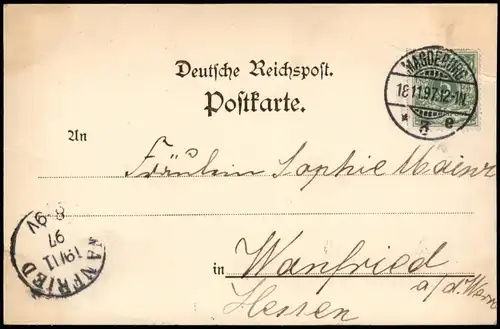 Deutsche Reichspost.
Postkarte.
MAGDEBURG
18.11.97.12-1N.
* 3 e
An
Fräulein Sophie Mainz
WANFRIED
19/11
97
8-9V
in Wanfried
a/d. Werra
Hessen